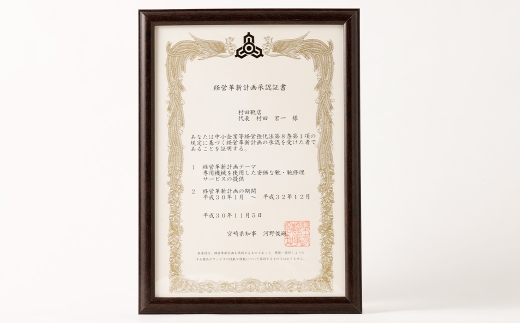 経営革新計画承認証書
村田靴店
代表 村田 宏一 様
あなたは中小企業等経営強化法第8条第1項の
規定に基づく経営革新計画の承認を受けた者で
あることを証明する。
1 経営革新計画テーマ
専用機械を使用した安価な靴・鞄修理
サービスの提供
2 経営革新計画の期間
平成30年1月 ～ 平成32年12月
平成30年11月5日
宮崎県知事 河野俊嗣